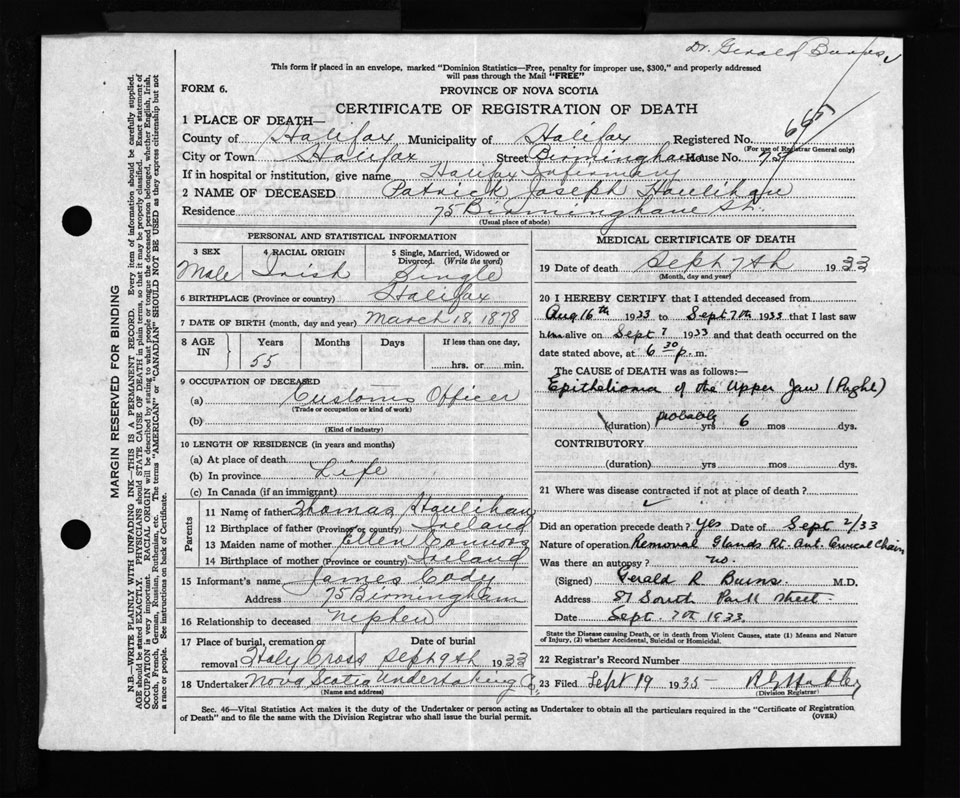 Dr. Gerald Burns
This form if placed in an envelope, marked "Dominion Statistics—Free, penalty for improper use, $300," and properly addressed
will pass through the Mail "FREE"
FORM 6.
PROVINCE OF NOVA SCOTIA
CERTIFICATE OF REGISTRATION OF DEATH
1 PLACE OF DEATH—
County of Halifax Municipality of Halifax Registered No. 665
(For use of Registrar General only)
City or Town Halifax Street Birmingham House No. 75
If in hospital or institution, give name Halifax Infirmary
2 NAME OF DECEASED Patrick Joseph Houlihan
Residence 75 Birmingham St.
(Usual place of abode)
PERSONAL AND STATISTICAL INFORMATION
3 SEX Male
4 RACIAL ORIGIN Irish
5 Single, Married, Widowed or Divorced. (Write the word) Single
6 BIRTHPLACE (Province or country) Halifax
7 DATE OF BIRTH (month, day and year) March 18, 1878
8 AGE IN Years 55 Months Days If less than one day, hrs. or min.
9 OCCUPATION OF DECEASED
(a) Customs Officer
(Trade or occupation or kind of work)
(b)
(Kind of industry)
10 LENGTH OF RESIDENCE (in years and months)
(a) At place of death
(b) In province Life
(c) In Canada (if an immigrant)
Parents
11 Name of father Thomas Houlihan
12 Birthplace of father (Province or country) Ireland
13 Maiden name of mother Ellen Connors
14 Birthplace of mother (Province or country) Ireland
15 Informant's name James Cody
Address 75 Birmingham
16 Relationship to deceased Nephew
17 Place of burial, cremation or removal Holy Cross Date of burial Sept 9th 1933
18 Undertaker Nova Scotia Undertaking Co.
(Name and address)
MEDICAL CERTIFICATE OF DEATH
19 Date of death Sept 7th 1933
(Month, day and year)
20 I HEREBY CERTIFY that I attended deceased from
Aug 16th 1933 to Sept 7th 1933 that I last saw
him alive on Sept 7 1933 and that death occurred on
date stated above, at 6 30 p. m.
The CAUSE OF DEATH was as follows:—
Epithelioma of the Upper Jaw (Right)
(duration) probably yrs 6 mos dys.
CONTRIBUTORY
(duration) yrs mos dys.
21 Where was disease contracted if not at place of death?
Did an operation precede death? Yes Date of Sept 2/33
Nature of operation Removal Glands Rt. Ant. Cervical Chain
Was there an autopsy? no.
(Signed) Gerald R Burns. M.D.
Address 87 South Park Street
Date Sept. 7th 1933.
State the Disease causing Death, or in death from Violent Causes, state (1) Means and Nature
of Injury, (2) whether Accidental, Suicidal or Homicidal.
22 Registrar's Record Number
23 Filed Sept 19 1935
(Division Registrar)
Sec. 46—Vital Statistics Act makes it the duty of the Undertaker or person acting as Undertaker to obtain all the particulars required in the "Certificate of Registration
of Death" and to file the same with the Division Registrar who shall issue the burial permit.
(OVER)
MARGIN RESERVED FOR BINDING
N.B.—WRITE PLAINLY WITH UNFADING INK—THIS IS A PERMANENT RECORD. Every item of information should be carefully supplied.
AGE should be stated EXACTLY. PHYSICIANS should STATE CAUSE OF DEATH in plain terms, so that it may be properly classified. Exact statement of
OCCUPATION is very important. RACIAL ORIGIN will be described by stating to what people or tongue the deceased person belonged, whether English, Irish,
Scotch, French, German, Russian, Ruthenian, etc. The terms "AMERICAN" or "CANADIAN" SHOULD NOT BE USED as they express citizenship but not
a race or people. See instructions on back of Certificate.